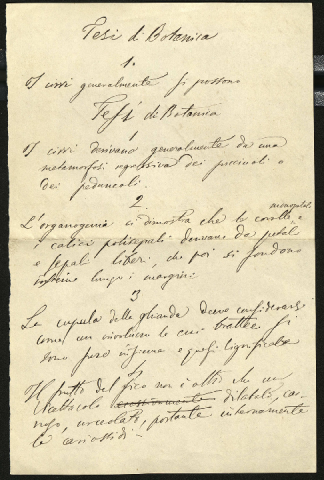 Tesi di Botanica
1.
I cirri generalmente si possono
Tesi di Botanica
1
I cirri derivano generalmente da una
metamorfosi regressiva dei piccinoli o
dei peduncoli.
2
L'organogenia ci dimostra che le corolle e
i calici derivano da petali
e sepali liberi, che poi si fondono
lungo i margini.
3
La cupola della ghianda deve considerarsi
come un involucro le cui brattee si
sono però insieme e quasi lignificate
5
Il frutto del fico non è altro che un
ricettacolo dilatato, car-
noso, portante internamente
le cariossidi.